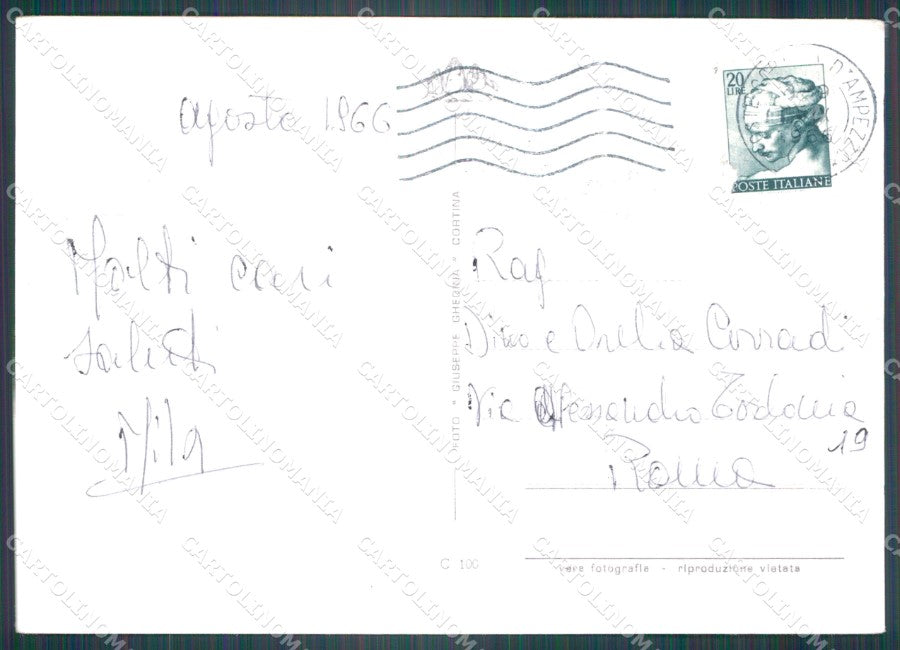 agosto 1966
Molti cari
saluti
Mila
20
LIRE
POSTE ITALIANE
D'AMPEZZO
FOTO " GIUSEPPE GHEDINA " CORTINA
Rag
Dino e Onelia Corradi
Via Alessandro
19
Roma
C 100
vere fotografie - riproduzione vietata
CARTOLINOMANIA